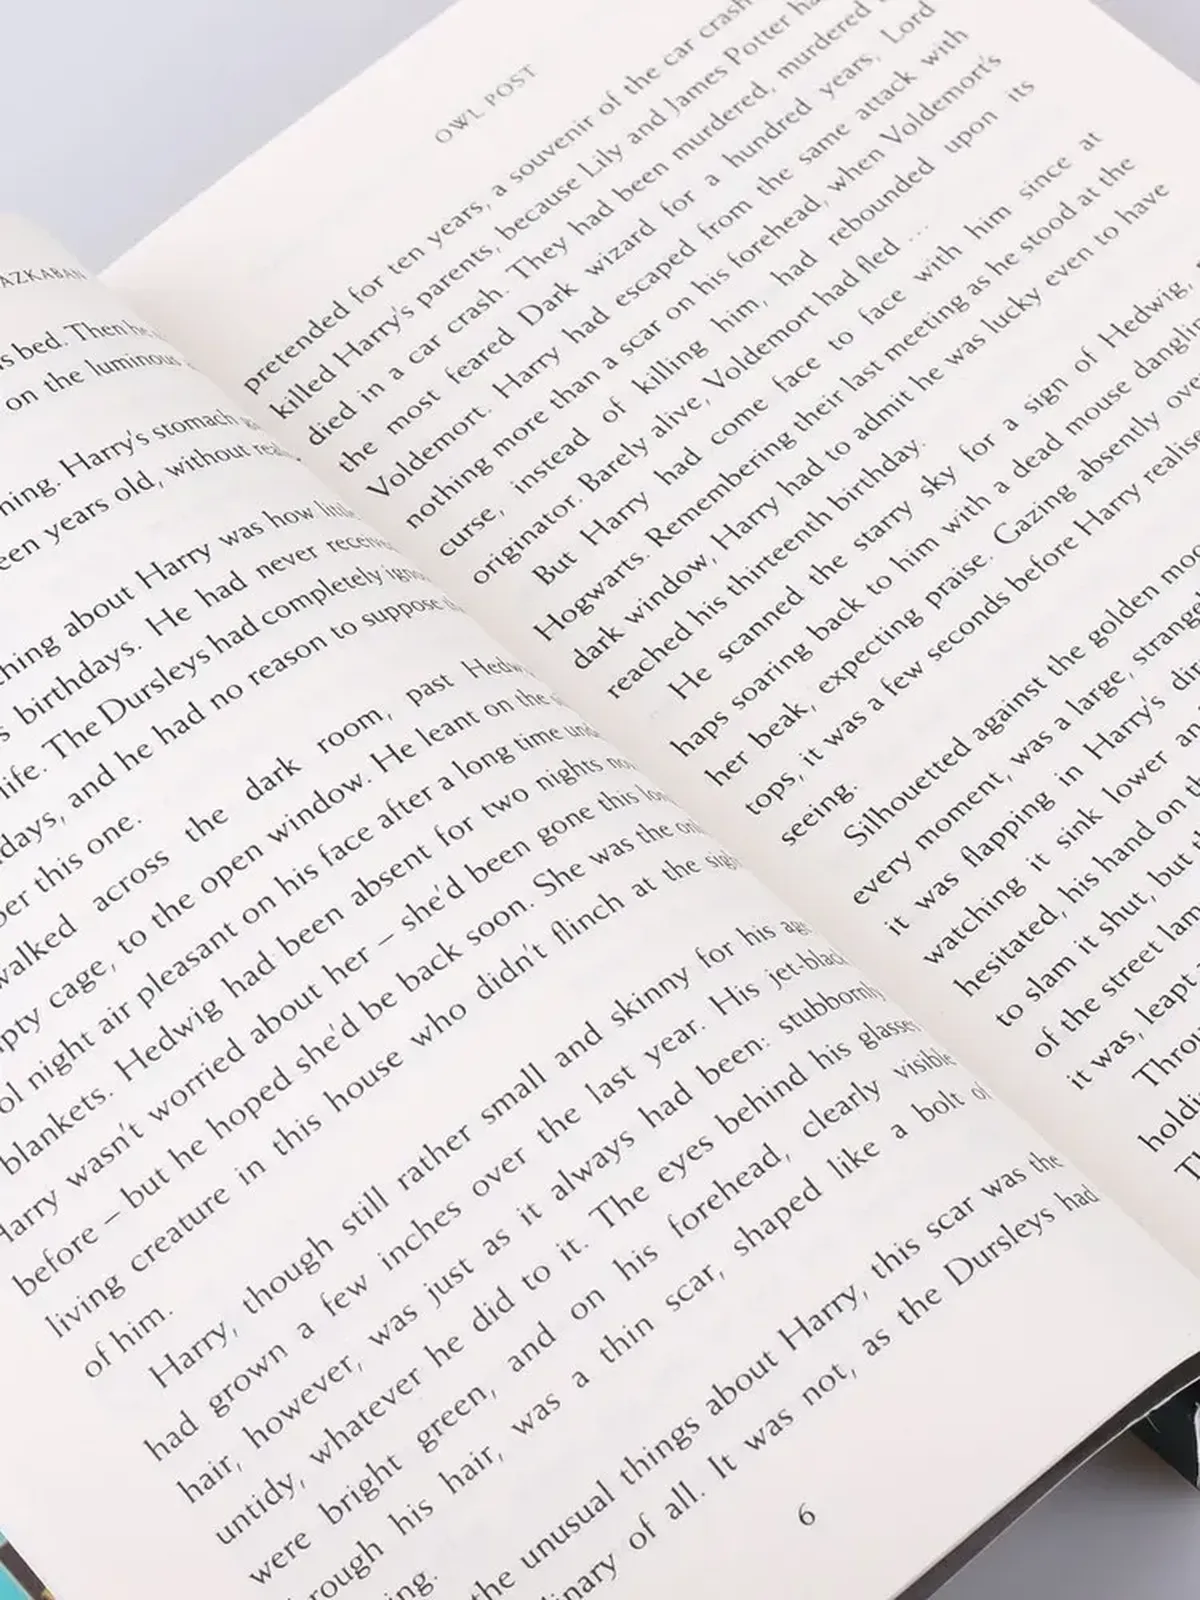 AZKABAN
bed. Then he
on the luminous
Harry's stomach
years old, without
about Harry was how little
birthdays. He had never
life. The Dursleys had completely
and he had no reason to suppose
this one.
walked across the dark room, past
cage, to the open window. He leant on the
night air pleasant on his face after a long time
blankets. Hedwig had been absent for two nights
Harry wasn't worried about her – she'd been gone this
before – but he hoped she'd be back soon. She was the
living creature in this house who didn't flinch at the
of him.
Harry, though still rather small and skinny for his
had grown a few inches over the last year. His
hair, however, was just as it always had been: stubbornly
untidy, whatever he did to it. The eyes behind his
were bright green, and on his forehead, clearly visible
his hair, was a thin scar, shaped like a bolt of
the unusual things about Harry, this scar was the
of all. It was not, as the Dursleys had
6
OWL POST
pretended for ten years, a souvenir of the car crash
killed Harry's parents, because Lily and James Potter
died in a car crash. They had been murdered, murdered
the most feared Dark wizard for a hundred years, Lord
Voldemort. Harry had escaped from the same attack with
nothing more than a scar on his forehead, when Voldemort's
curse, instead of killing him, had rebounded upon its
originator. Barely alive, Voldemort had fled ...
But Harry had come face to face with him since at
Hogwarts. Remembering their last meeting as he stood at the
dark window, Harry had to admit he was lucky even to have
reached his thirteenth birthday.
He scanned the starry sky for a sign of Hedwig,
haps soaring back to him with a dead mouse
her beak, expecting praise. Gazing absently
tops, it was a few seconds before Harry
seeing.
Silhouetted against the golden
every moment, was a large,
it was flapping in Harry's
watching it sink lower
hesitated, his hand on
to slam it shut, but
of the street
it was, leapt